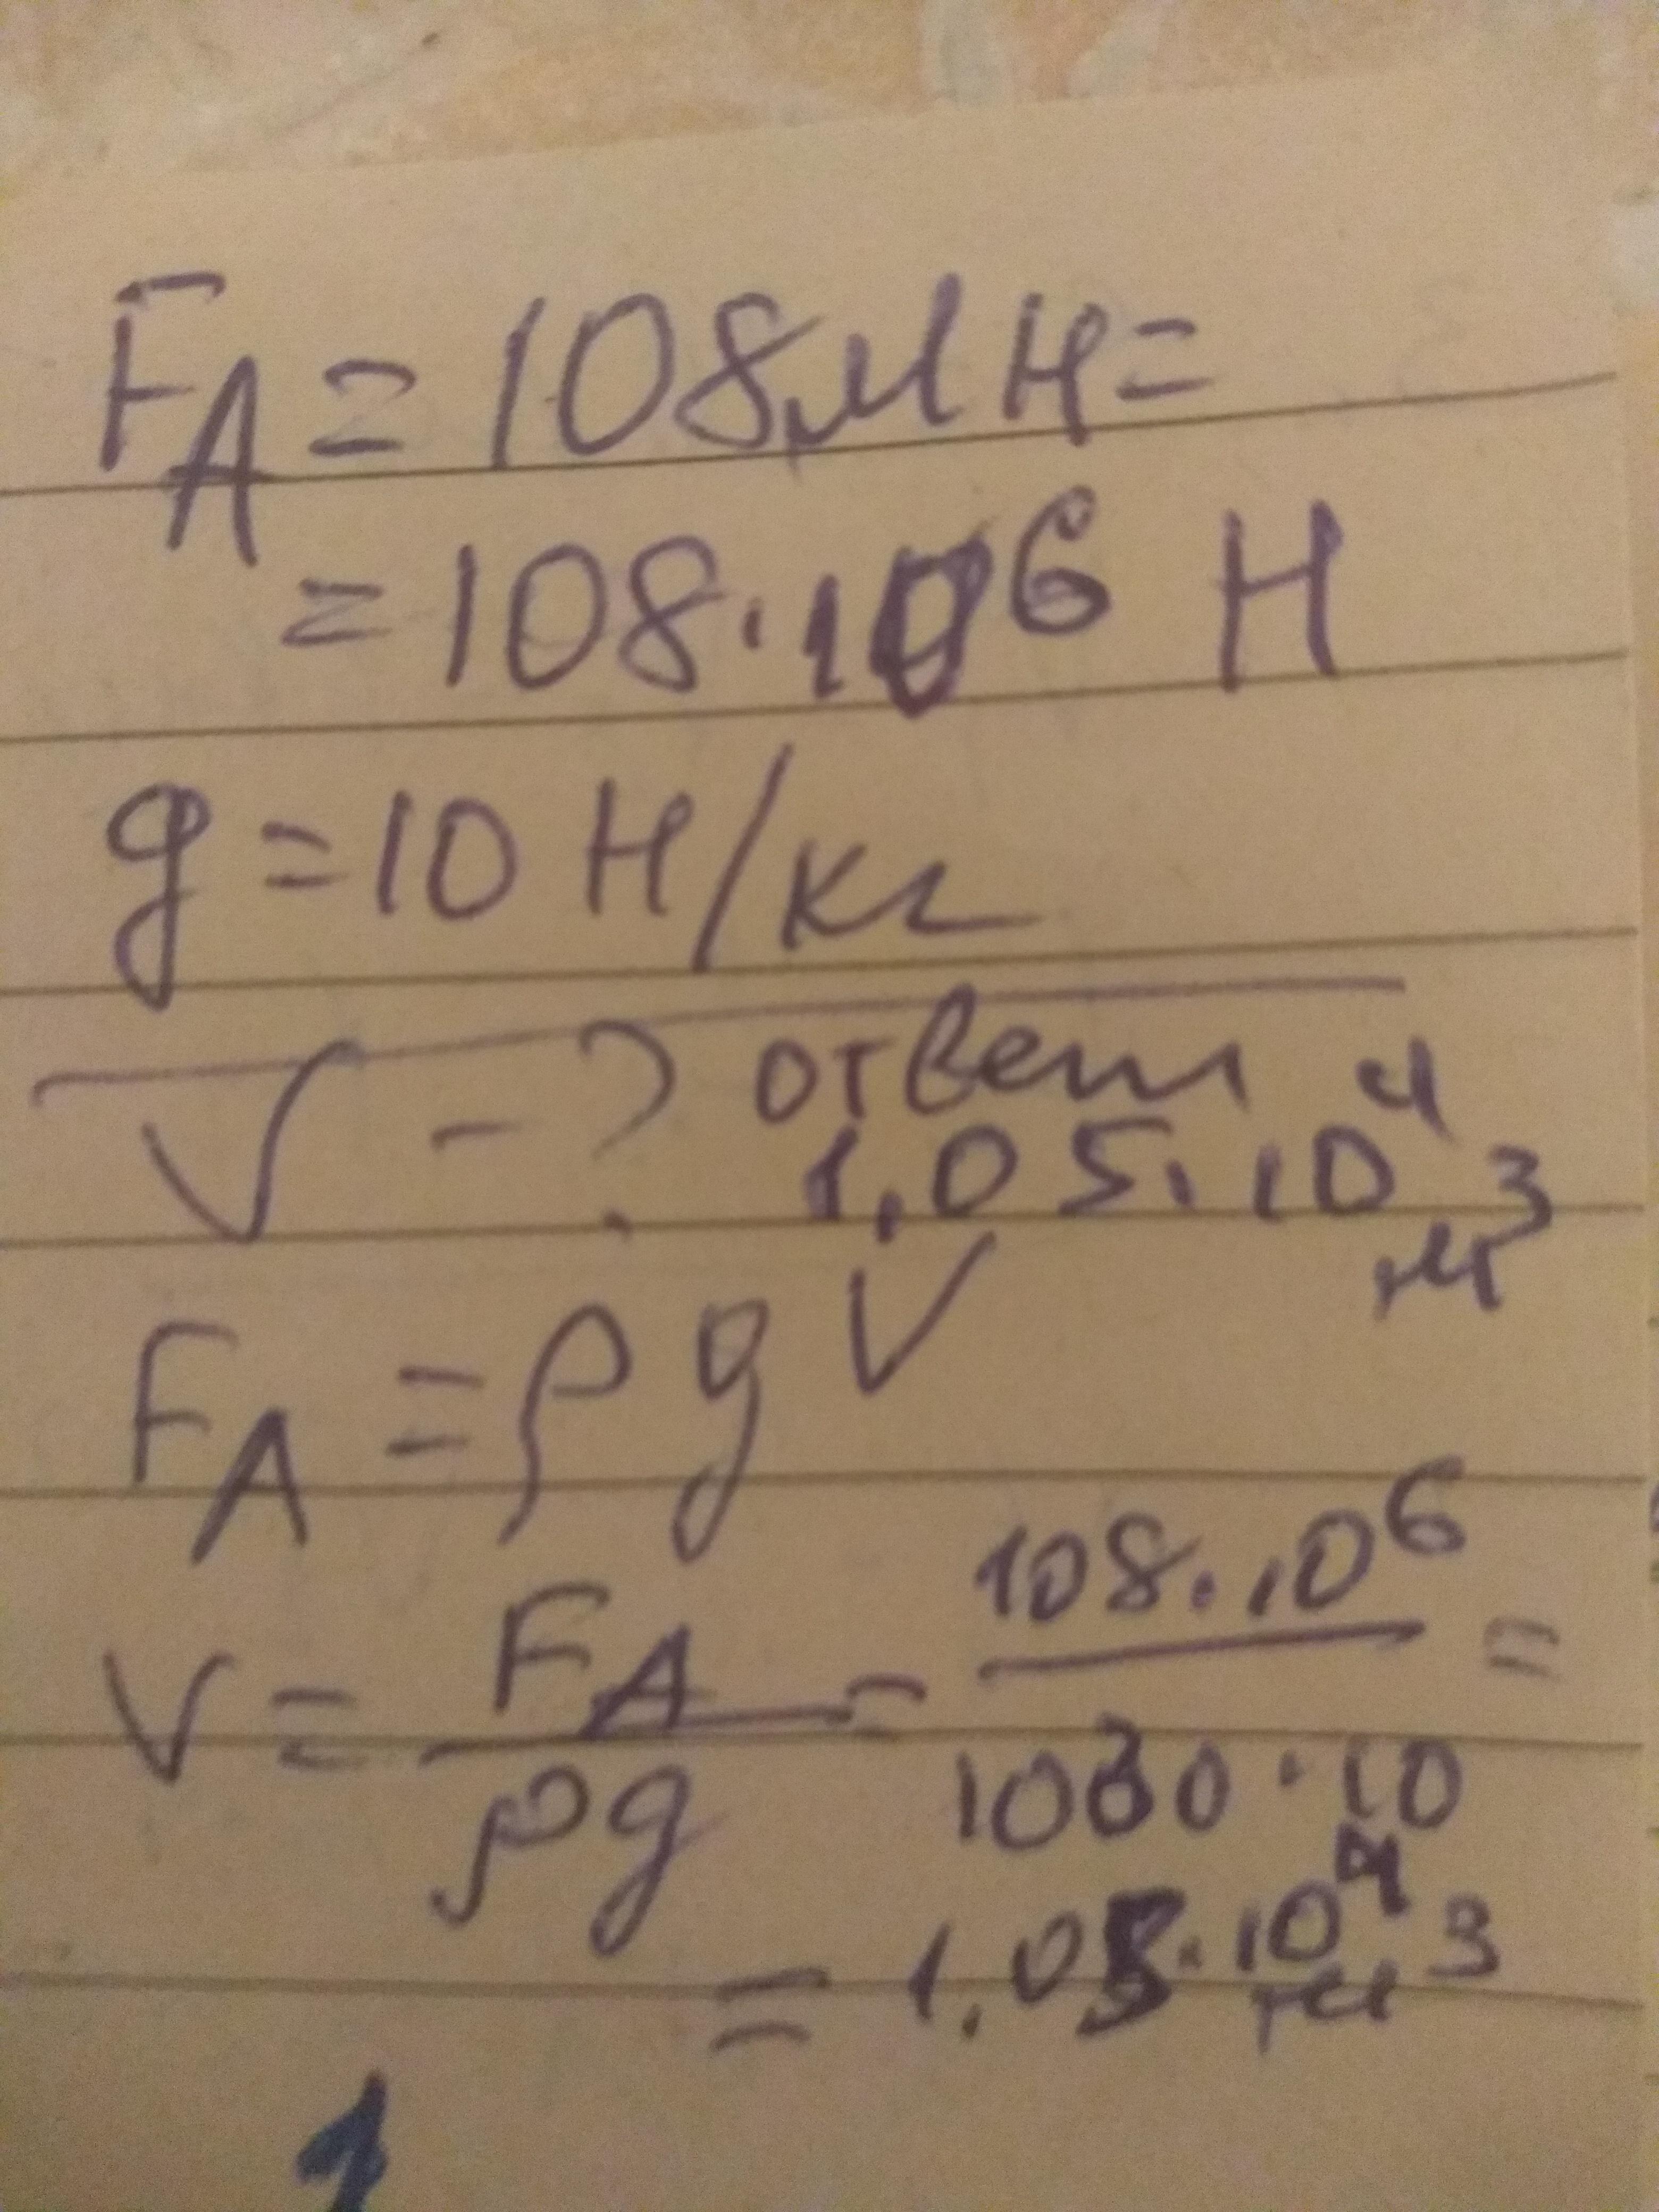 F_A = 108 мН =
= 108·10⁶ Н
g = 10 Н/кг
V - ? ответ
1,05·10⁴ м³
F_A = ρgV
V = F_A/ρg = 108·10⁶/1030·10 =
= 1,05·10⁴ м³
1